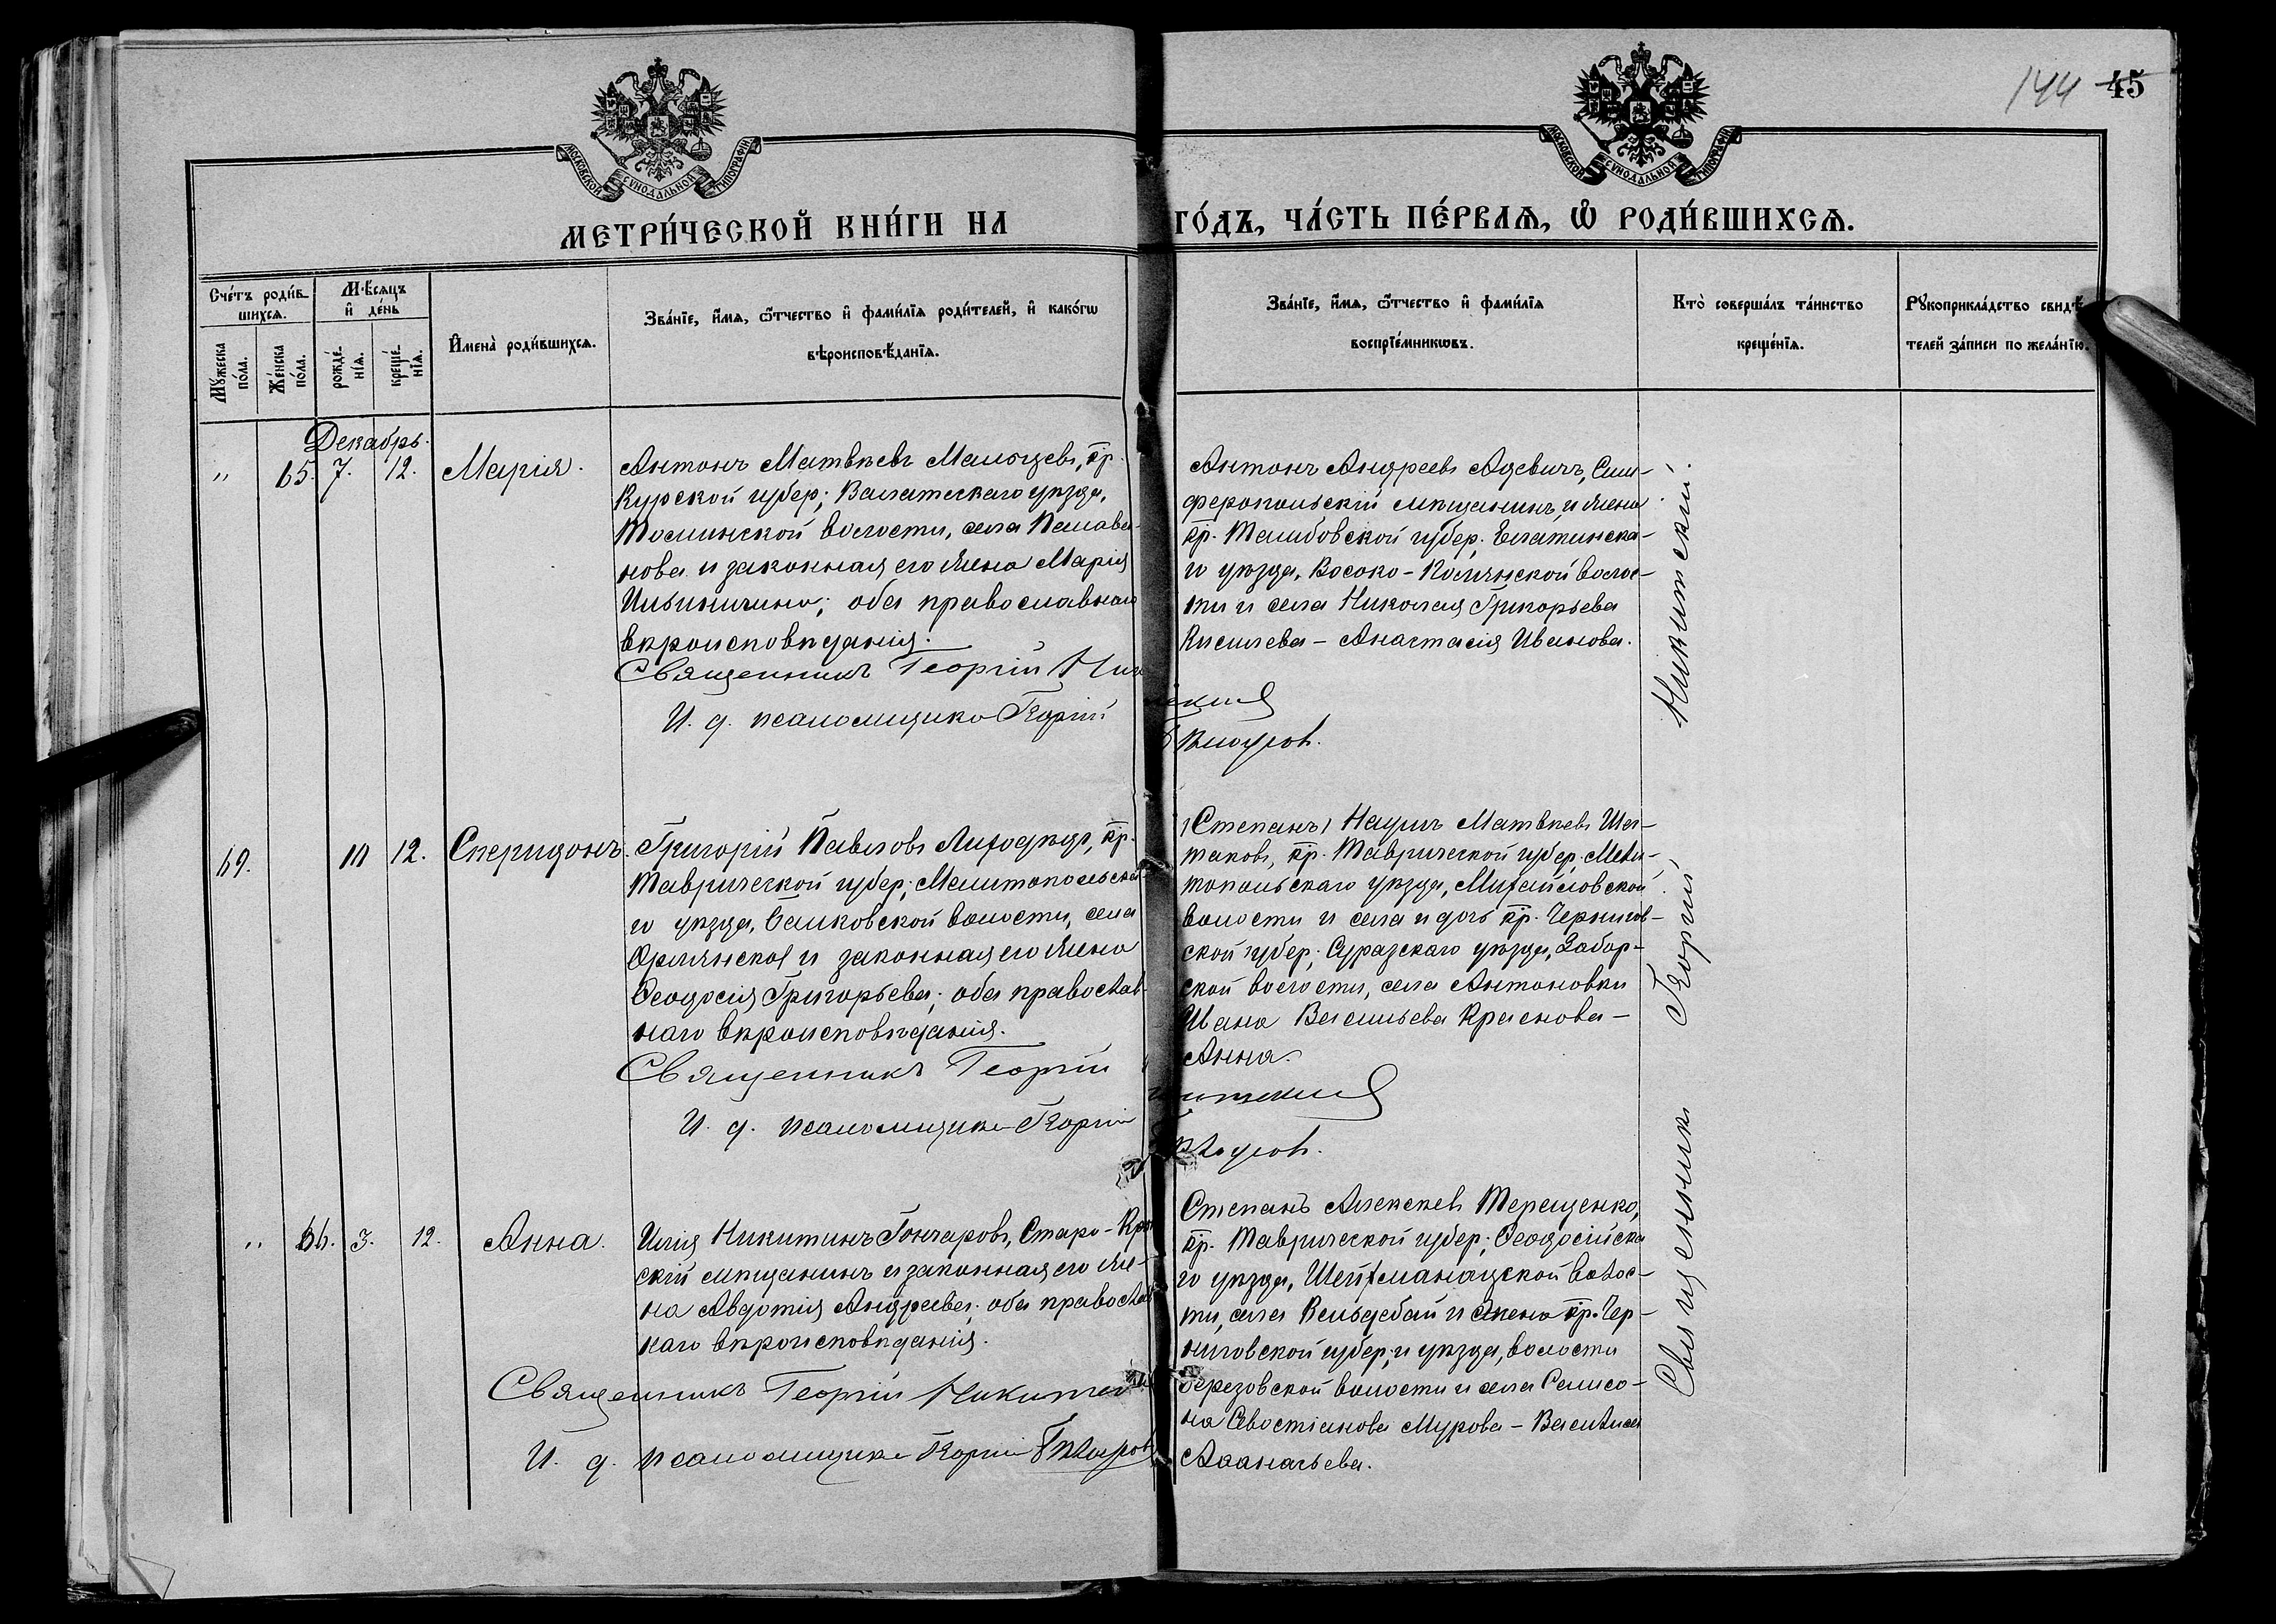 144 45
МОСКОВСКОЙ СУНОДАЛЬНОЙ ТИПОГРАФІИ
МОСКОВСКОЙ СУНОДАЛЬНОЙ ТИПОГРАФІИ
МЕТРИ́ЧЕСКОЙ КНИ́ГИ НА
ГО́ДЪ, ЧА́СТЬ ПЕ́РВАѦ, Ѡ҆ РОДИ́ВШИХСѦ.
Сче́тъ роди́в-
шихсѧ.
Мꙋ́жеска по́ла.
Же́нска по́ла.
Мѣ́сѧцъ
и҆ де́нь
рожде́-
нїѧ.
креще́-
нїѧ.
И҆мена̀ роди́вшихсѧ.
Зва́нїе, и҆́мѧ, ѻ҆́тчество и҆ фами́лїѧ роди́телей, и҆ како́гѡ
вѣроисповѣ́данїѧ.
Зва́нїе, и҆́мѧ, ѻ҆́тчество и҆ фами́лїѧ
воспрїе́мникѡвъ.
Кто̀ соверша́лъ та́инство
креще́нїѧ.
Рꙋкоприкла́дство свидѣ́-
телей за́писи по жела́нїю.
Декабрь.
" 65. 7. 12. Марія.
Антонъ Матвѣевъ Мальцевъ, кр.
Курской губер;
волости, села
нова и законная его жена Марія
Ильинична; оба православнаго
вѣроисповѣданія.
Священникъ Георгій
И. д. псаломщика Георгій
Антонъ Андреевъ Сим-
феропольскій мѣщанинъ, и жена
кр. Тамбовской губер; Елатинска-
го уѣзда, волос-
ти и села Николая Григорьева
Киселева – Анастасія Иванова.
69. 10 12. Спиридонъ.
Григорій Павловъ Лиходѣдъ, кр.
Таврической губер; Мелитопольска-
го уѣзда, Балковской волости, села
Орлянско и законная его жена
Ѳеодосія Григорьева; оба православ-
наго вѣроисповѣданія.
Священникъ Георгій
И. д. псаломщика Георгій
(Степанъ) Наумъ Матвѣевъ Ше-
таковъ, кр. Таврической губер; Мели-
топольскаго уѣзда, Михайловской
волости и села и дочь кр. Чернигов-
ской губер; Суразскаго уѣзда, Забор-
ской волости, села Антоновки
Ивана Васильева Краснова –
Анна.
" 66. 3. 12. Анна.
Илія Никитинъ Гончаровъ, Старо-Кры
скій мѣщанинъ и законная его же-
на Авдотія Андреева; оба православ
наго вѣроисповѣданія.
Священникъ Георгій
И. д. псаломщика Георгій
Степанъ Алексѣевъ Терещенко,
кр. Таврической губер; Ѳеодосійска
го уѣзда, волос-
ти, села и жена кр. Чер-
ниговской губер; и уѣзда, волости
Березовской волости и села Самсо-
на Севостіанова Мурова – Василиса
Аѳанасьева.
Священникъ Георгій Никитскій.